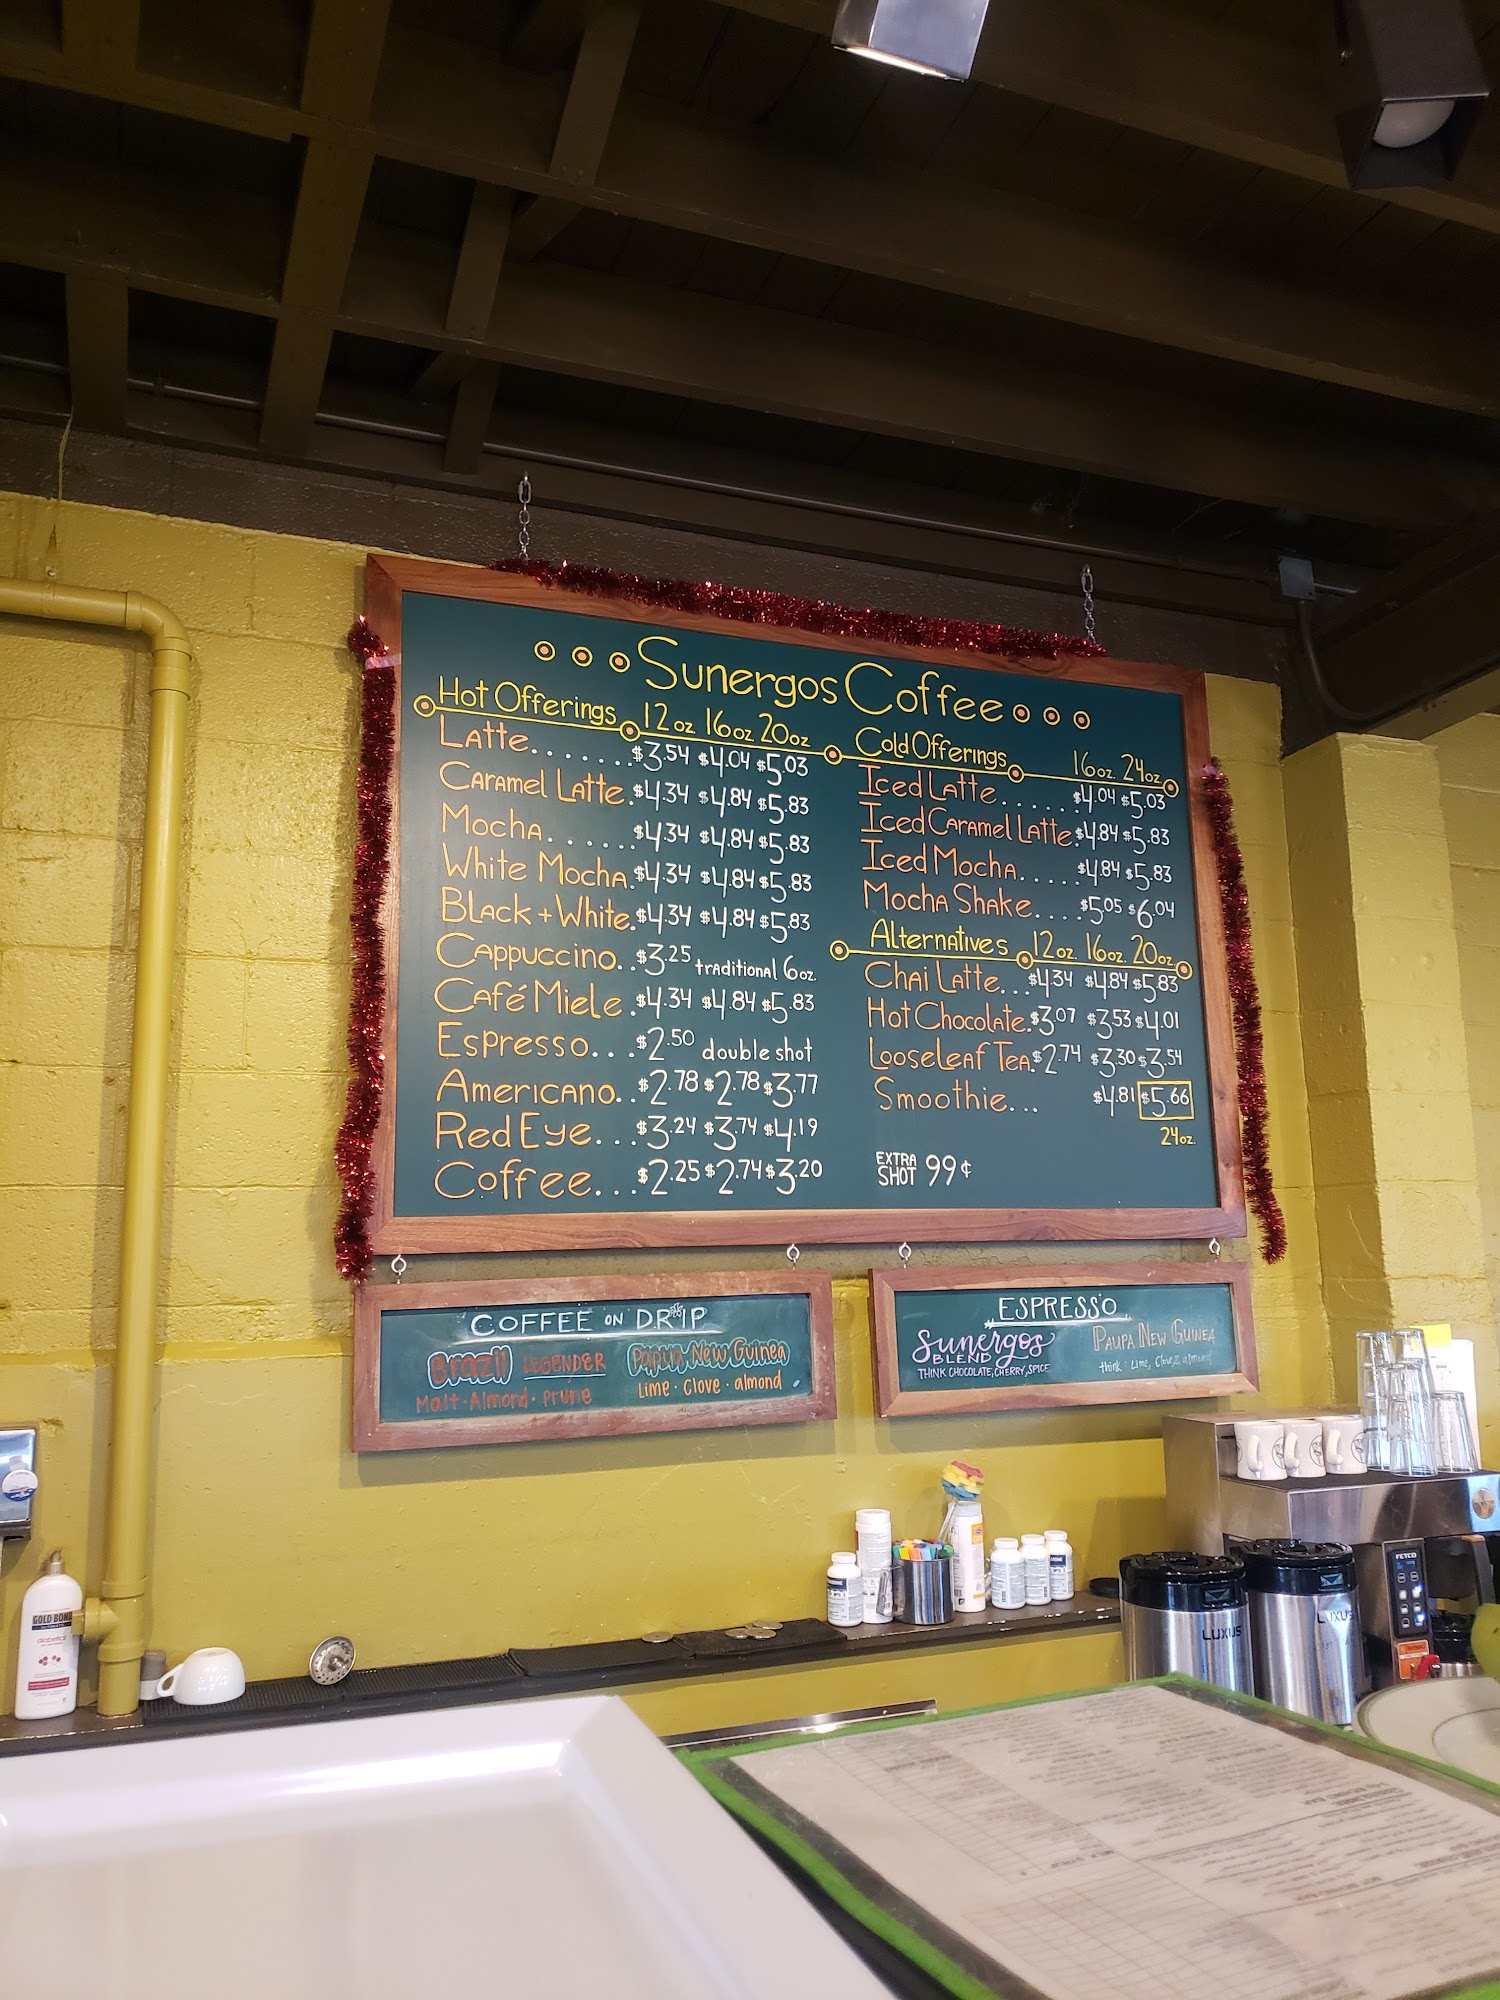 Sunergos Coffee
Hot Offerings 12oz 16oz 20oz
Latte....... $3.54 $4.04 $5.03
Caramel Latte. $4.34 $4.84 $5.83
Mocha...... $4.34 $4.84 $5.83
White Mocha. $4.34 $4.84 $5.83
Black + White. $4.34 $4.84 $5.83
Cappuccino.. $3.25 traditional 6oz.
Café Miele. $4.34 $4.84 $5.83
Espresso... $2.50 double shot
Americano.. $2.78 $2.78 $3.77
Red Eye... $3.24 $3.74 $4.19
Coffee... $2.25 $2.74 $3.20
Cold Offerings 16oz. 24oz
Iced Latte...... $4.04 $5.03
Iced Caramel Latte. $4.84 $5.83
Iced Mocha..... $4.84 $5.83
Mocha Shake.... $5.05 $6.04
Alternatives 12oz. 16oz. 20oz.
Chai Latte... $4.34 $4.84 $5.83
Hot Chocolate. $3.07 $3.53 $4.01
Looseleaf Tea. $2.74 $3.30 $3.54
Smoothie... $4.81 $5.66
24oz.
EXTRA SHOT 99¢
COFFEE ON DRIP
Brazil LEGENDER
Malt · Almond · prune
Papua New Guinea
Lime · Clove · almond
ESPRESSO
Sunergos
BLEND
THINK CHOCOLATE, CHERRY, SPICE
PAUPA NEW GUINEA
think: Lime, Clove & almond
GOLD BOND
LUXUS
LUXUS
FETCO